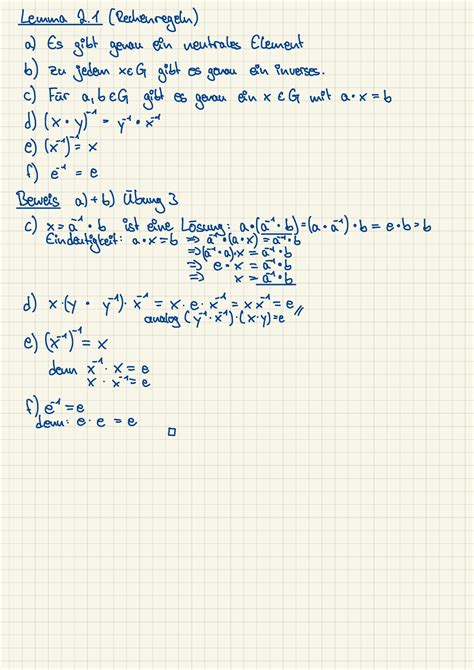 Lemma 2.1 (Rechenregeln)
a) Es gibt genau ein neutrales Element
b) zu jedem x∈G gibt es genau ein inverses.
c) Für a, b∈G gibt es genau ein x∈G mit a•x=b
d) (x•y)⁻¹ = y⁻¹•x⁻¹
e) (x⁻¹)⁻¹ = x
f) e⁻¹ = e
Beweis a)+b) Übung 3
c) x=a⁻¹•b ist eine Lösung: a•(a⁻¹•b)=(a•a⁻¹)•b=e•b=b
Eindeutigkeit: a•x=b ⇒ a⁻¹•(a•x)=a⁻¹•b
⇒(a⁻¹•a)•x=a⁻¹•b
⇒ e•x=a⁻¹•b
⇒ x=a⁻¹•b
d) x•(y•y⁻¹)•x⁻¹=x•e•x⁻¹=xx⁻¹=e //
analog (y⁻¹•x⁻¹)•(x•y)=e
e) (x⁻¹)⁻¹=x
denn x⁻¹•x=e
x•x⁻¹=e
f) e⁻¹=e
denn: e•e=e
□